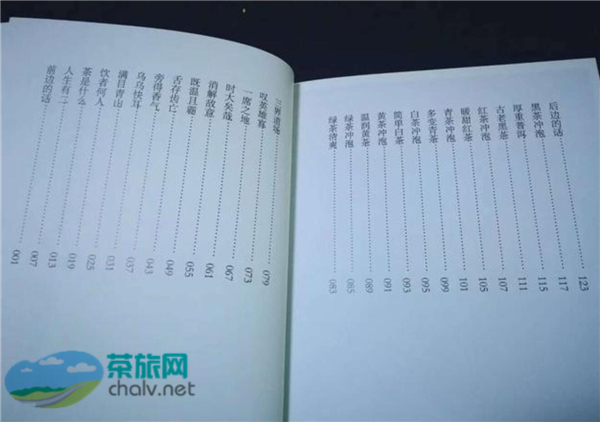 前边的话 …… 001
人生有二 …… 007
茶是什么 …… 013
饮者何人 …… 019
满目青山 …… 025
乌乌快耳 …… 031
旁得香气 …… 037
舌存齿亡 …… 043
既温且霸 …… 049
消解敌意 …… 055
时大矣哉 …… 061
一席之地 …… 067
叹英雄寡 …… 073
三界道场 …… 079
绿茶清爽 …… 083
绿茶冲泡 …… 085
温润黄茶 …… 089
黄茶冲泡 …… 091
简单白茶 …… 093
白茶冲泡 …… 095
多变青茶 …… 099
青茶冲泡 …… 101
暖甜红茶 …… 105
红茶冲泡 …… 107
古老黑茶 …… 111
厚重普洱 …… 115
黑茶冲泡 …… 117
后边的话 …… 123
茶旅网
chalv.net